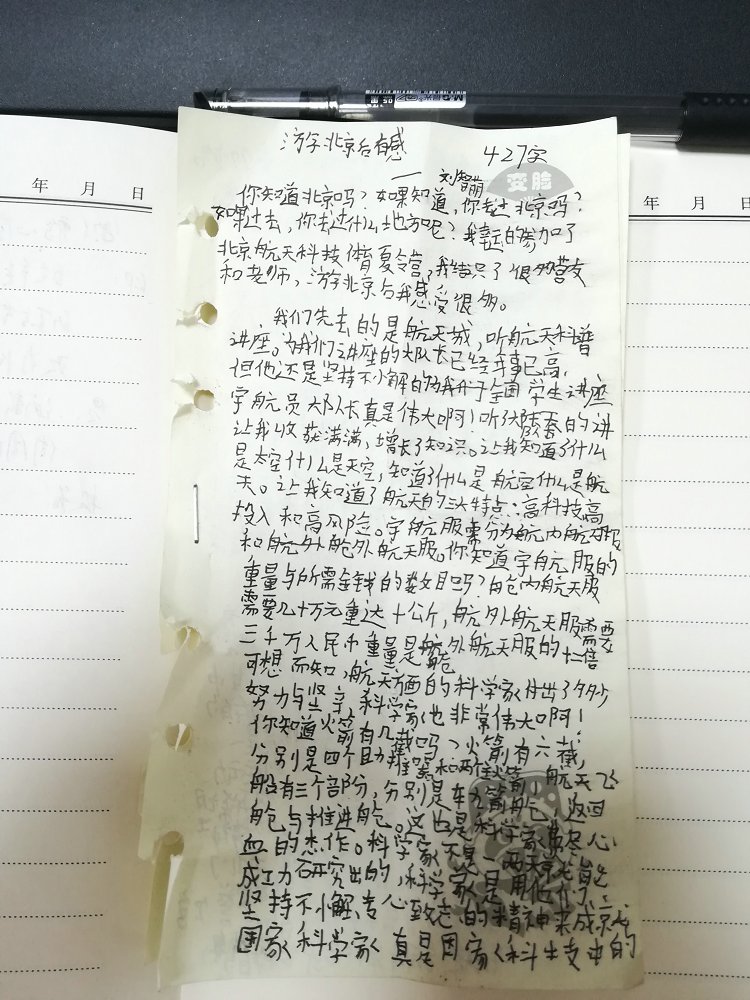 年 月 日
年 月 日
游学北京后有感 427字
刘智萌
变脸
你知道北京吗?如果知道,你去过北京吗?
如果过去,你去过什么地方呢?我幸运的参加了
北京航天科技体育夏令营,我结识了很多营友
和老师,游学北京后我感受很多。
我们先去的是航天城,听航天科普
讲座。为我们讲座的大队长已经年事已高,
但他还是坚持不小解的为我们于全国学生讲座
宇航员大队长真是伟大啊!听 的讲
让我收获满满,增长了知识。让我知道了什么
是太空什么是天空,知道了什么是航空什么是航
天。让我知道了航天的三大特点:高科技高
投入和高风险。宇航服需分为舱内航天服
和舱外航天服。你知道宇航服的
重量与所需金钱的数目吗?舱内航天服
需要几十万元重达十公斤,舱外航天服需要
三千万人民币重量是舱外航天服的十二倍
可想而知,航天方面的科学家付出了多少
努力与坚 ,科学家也非常伟大啊!
你知道火箭有几截吗?火箭有六截,
分别是四个助推器和两 火箭,航天飞
船有三个部份,分别是 舱,返回
舱与推进舱。这也是科学家费尽心
血的杰作。科学家不是一两天就能
成功研究出的,科学家是用他们
坚持不小解、专心致志的精神来成就
国家科学家真是国家科 的